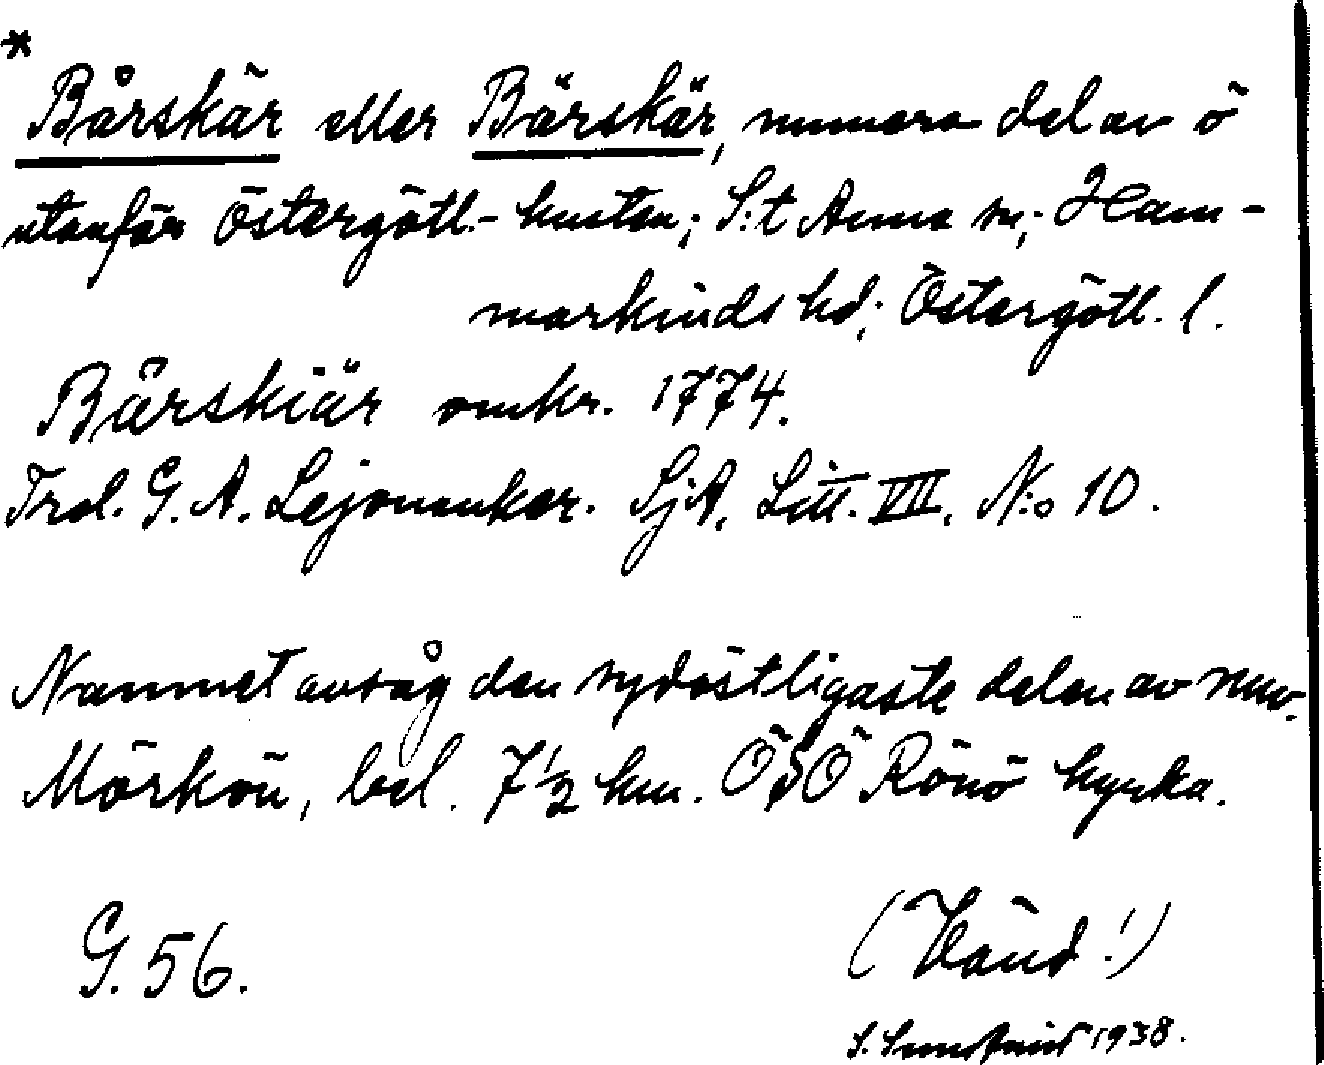 *
Bårskär eller Bärskär, numera del av ö
utanför Östergötl.-kusten; S:t Anna sn; Ham-
markinds hd; Östergötl. l.
Bårskiär omkr. 1774.
Trol. G. A. Lejonanker. SjA. Litt. VII. N:o 10.
Namnet avsåg den sydöstligaste delen av nuv.
Mörkön, bel. 7 1/2 km. ÖSÖ Rönö kyrka.
G. 56.
(Vänd!)
S. 1938.